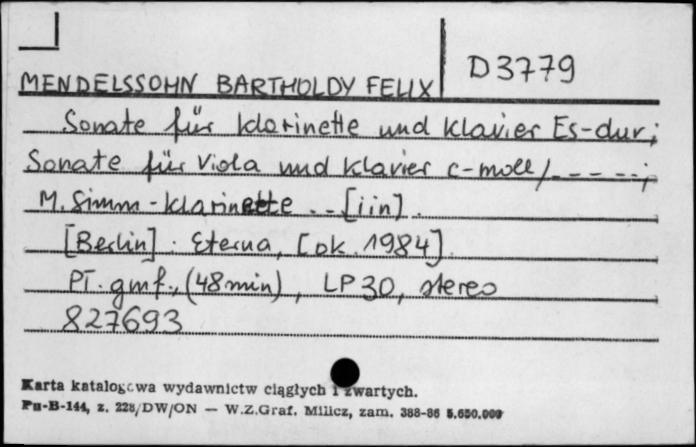 D3779
MENDELSSOHN BARTHOLDY FELIX
Sonate für Klarinette und Klavier Es-dur;
Sonate für Viola und Klavier c-moll / _ _ _ _ _ ;
M. Simm - Klarinette .. [iin].
[Berlin] : Eterna, [ok. 1984].
Pł. gmf., (48 min), LP 30, stereo
827693
Karta katalogowa wydawnictw ciągłych i zwartych.
Pu-B-144, z. 228/DW/ON — W.Z.Graf. Milicz, zam. 388-86 5.650.000